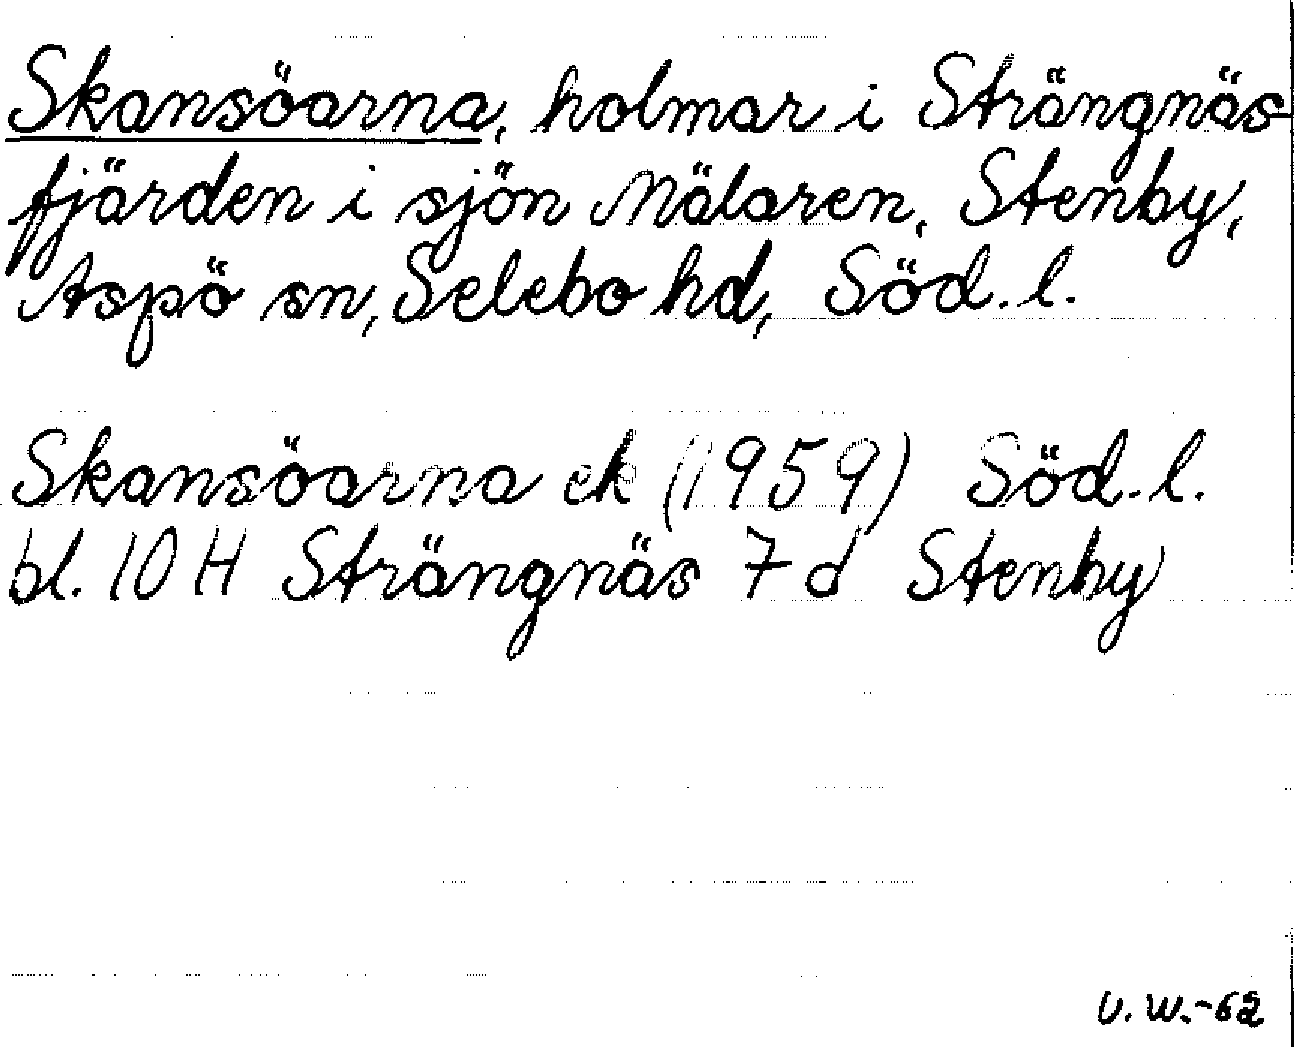 Skansöarna, holmar i Strängnäs-
fjärden i sjön Mälaren, Stenby,
Aspö sn, Selebo hd, Söd. l.
Skansöarna ek (1959) Söd. l.
bl. 10 H Strängnäs 7 d Stenby
U. W. -62